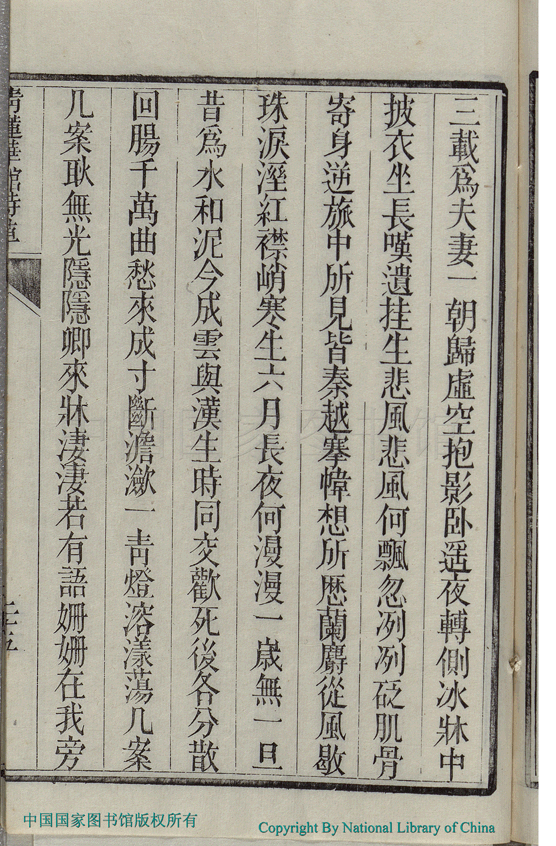 三載爲夫妻一朝歸虛空抱影卧遥夜轉側冰牀中
披衣坐長嘆遺挂生悲風悲風何飄忽冽冽砭肌骨
寄身逆旅中所見皆秦越搴幃想所歷蘭麝從風歇
珠淚溼紅襟峭寒生六月長夜何漫漫一歲無一旦
昔爲水和泥今成雲與漢生時同交歡死後各分散
回腸千萬曲愁來成寸斷澹瀲一靑燈溶漾蕩几案
几案耿無光隱隱卿來牀淒淒若有語姍姍在我旁
靑蓮華館詩
二五
中国国家图书馆版权所有
Copyright By National Library of China